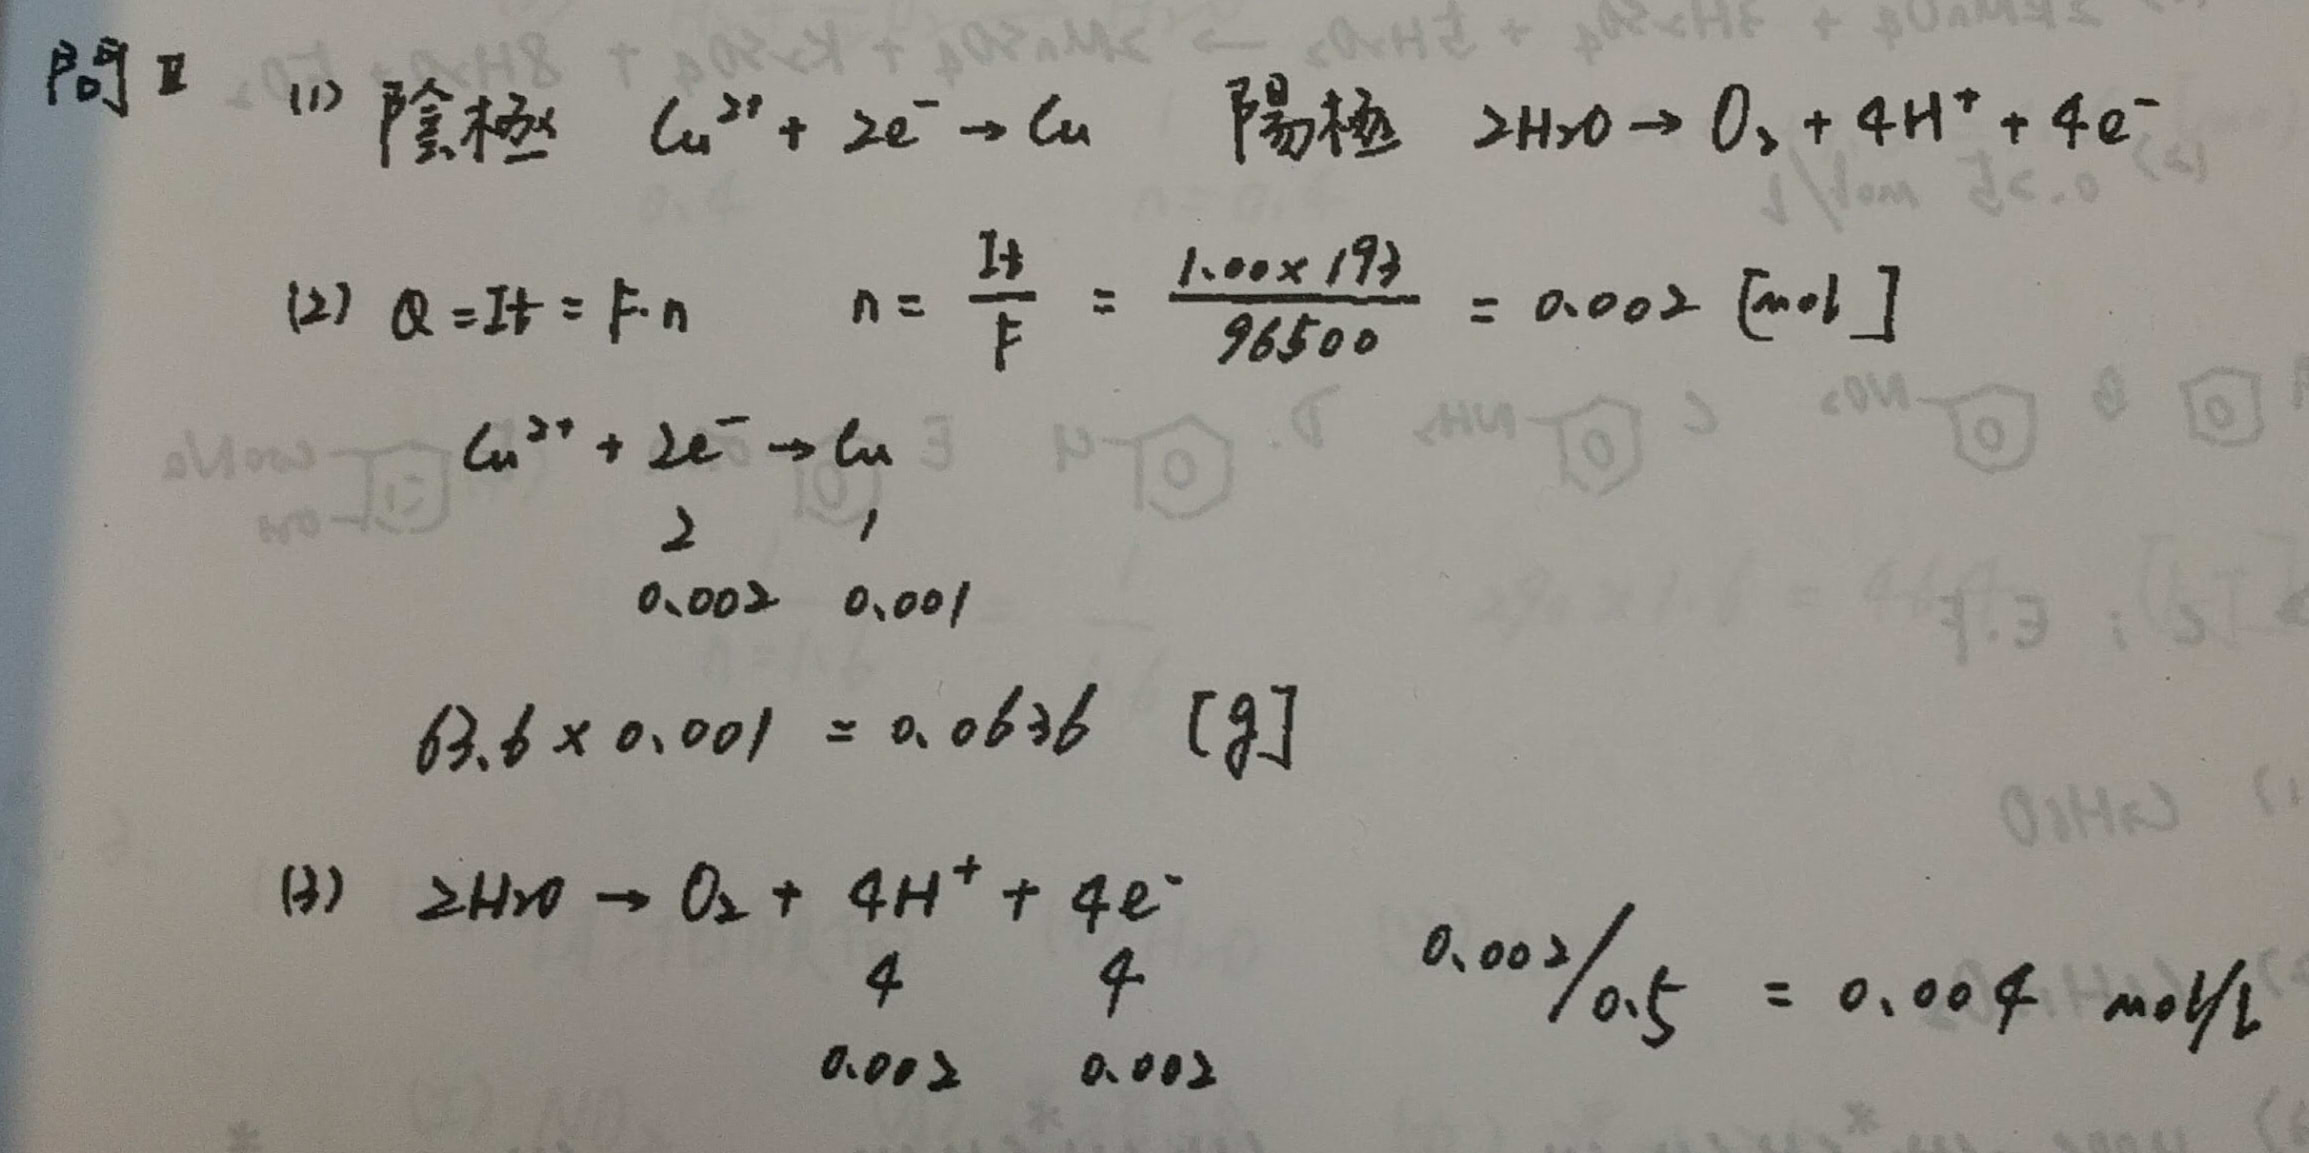 問Ⅱ (1) 陰極 Cu²⁺ + 2e⁻ → Cu 陽極 2H₂O → O₂ + 4H⁺ + 4e⁻
(2) Q = It = F·n n = It/F = 1.00×193/96500 = 0.002 [mol]
Cu²⁺ + 2e⁻ → Cu
2 1
0.002 0.001
63.6 × 0.001 = 0.0636 [g]
(3) 2H₂O → O₂ + 4H⁺ + 4e⁻
4 4 0.002/0.5 = 0.004 mol/L
0.002 0.002